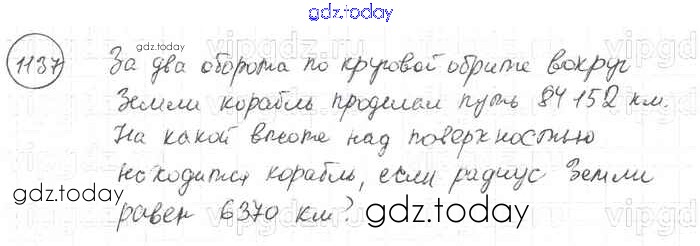 gdz.today
gdz.today
1137 За два оборота по круговой обрите вокруг
Земли корабль проделал путь 84 152 км.
На какой высоте над поверхностью
находится корабль, если радиус Земли
gdz.today
равен 6370 км? gdz.today